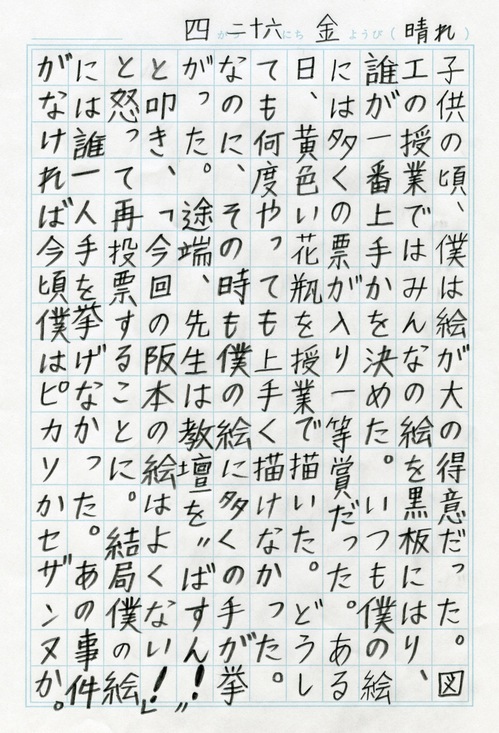 四がつ二十六にち金ようび(晴れ)
子供の頃、僕は絵が大の得意だった。図
工の授業ではみんなの絵を黒板にはり、
誰が一番上手かを決めた。いつも僕の絵
には多くの票が入り一等賞だった。ある
日、黄色い花瓶を授業で描いた。どうし
ても何度やっても上手く描けなかった。
なのに、その時も僕の絵に多くの手が挙
がった。途端、先生は教壇を〝ばすん!!〟
と叩き、「今回の阪本の絵はよくない!」
と怒って再投票することに。結局僕の絵
には誰一人手を挙げなかった。あの事件
がなければ今頃僕はピカソかセザンヌか。